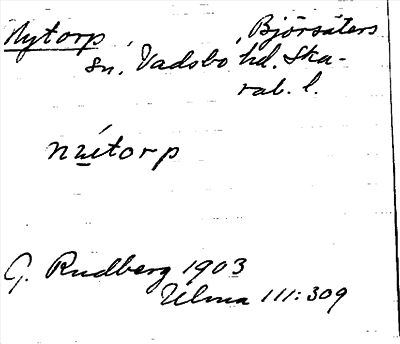 Nytorp, Björsäters
sn. Vadsbo hd. Ska-
rab. l.
nu̲ítorp
G. Rudberg 1903
Ulma 111:309